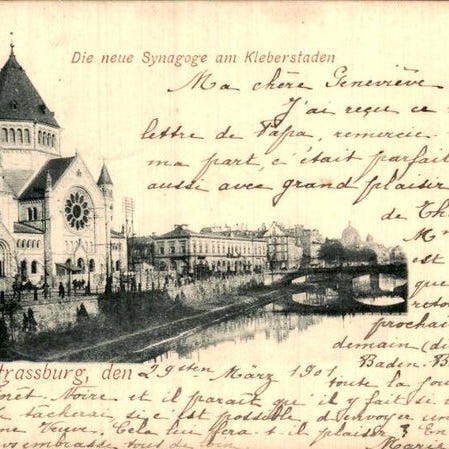 Die neue Synagoge am Kleberstaden
Ma chère Geneviève
J'ai reçu ce
lettre de Papa, remercie
ma part, c'était parfait
aussi avec grand plaisir
de
est
que
reto
prochai
demain (di
Strassburg, den 29sten März 1901 Baden-B
toute la
Forêt Noire et il paraît qu'il y fait si
Je tâcherai si c'est possible, d'envoyer un
Cela lui fera-t-il plaisir? En
embrasse tous de loin
Marie